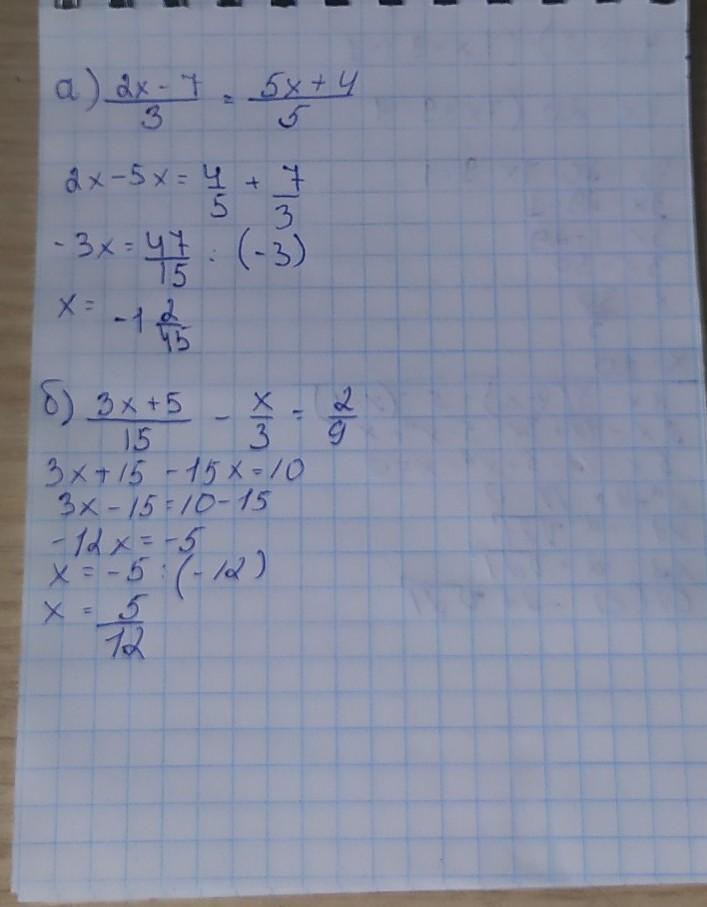 а) (2x - 7)/3 = (5x + 4)/5
2x - 5x = 4/5 + 7/3
-3x = 47/15 : (-3)
x = -1 2/45
б) (3x + 5)/15 - x/3 = 2/9
3x + 15 - 15x = 10
3x - 15 = 10 - 15
-12x = -5
x = -5 : (-12)
x = 5/12